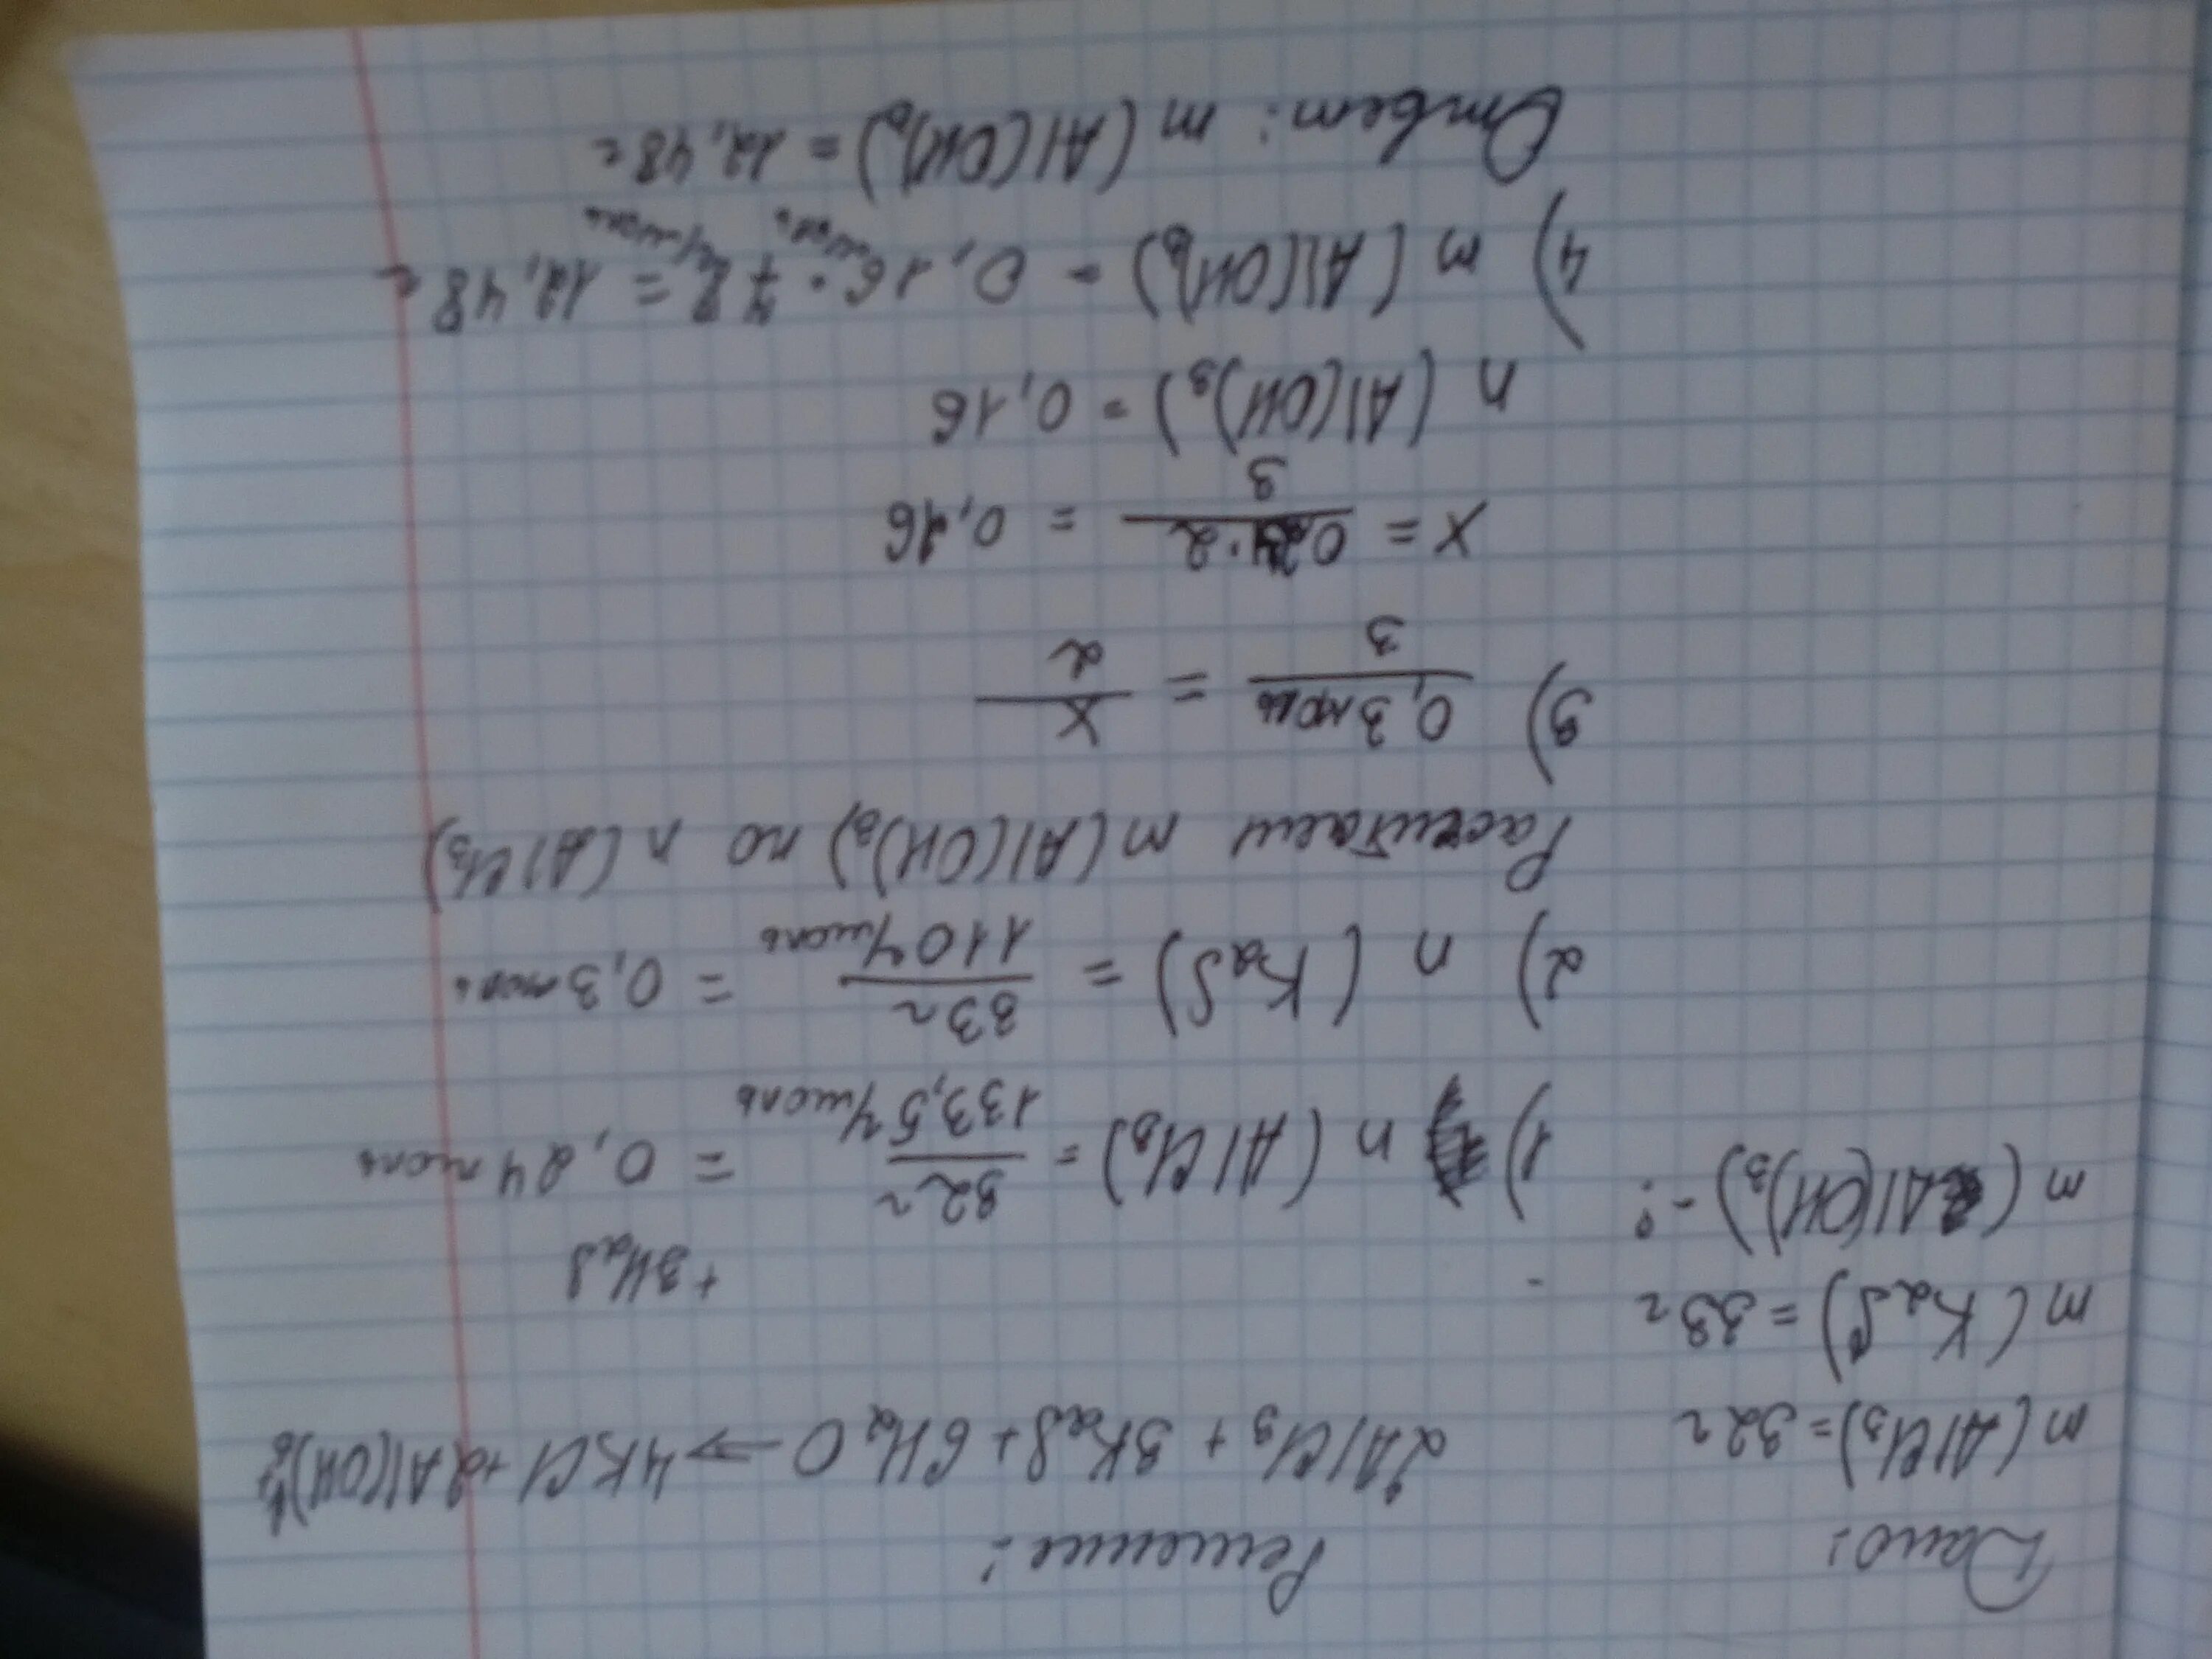 Дано:
m(AlCl₃) = 32 г
m(K₂S) = 33 г
m(Al(OH)₃) - ?
Решение:
2AlCl₃ + 3K₂S + 6H₂O → 4KCl + 2Al(OH)₃↓
+ 3H₂S
1) n(AlCl₃) = 32 г / 133,5 г/моль = 0,24 моль
2) n(K₂S) = 33 г / 110 г/моль = 0,3 моль
Расчитаем m(Al(OH)₃) по n(AlCl₃)
3) 0,3 моль / 3 = x / 2
x = 0,24 · 2 / 3 = 0,16
n(Al(OH)₃) = 0,16
4) m(Al(OH)₃) = 0,16 моль · 78 г/моль = 12,48 г
Ответ: m(Al(OH)₃) = 12,48 г